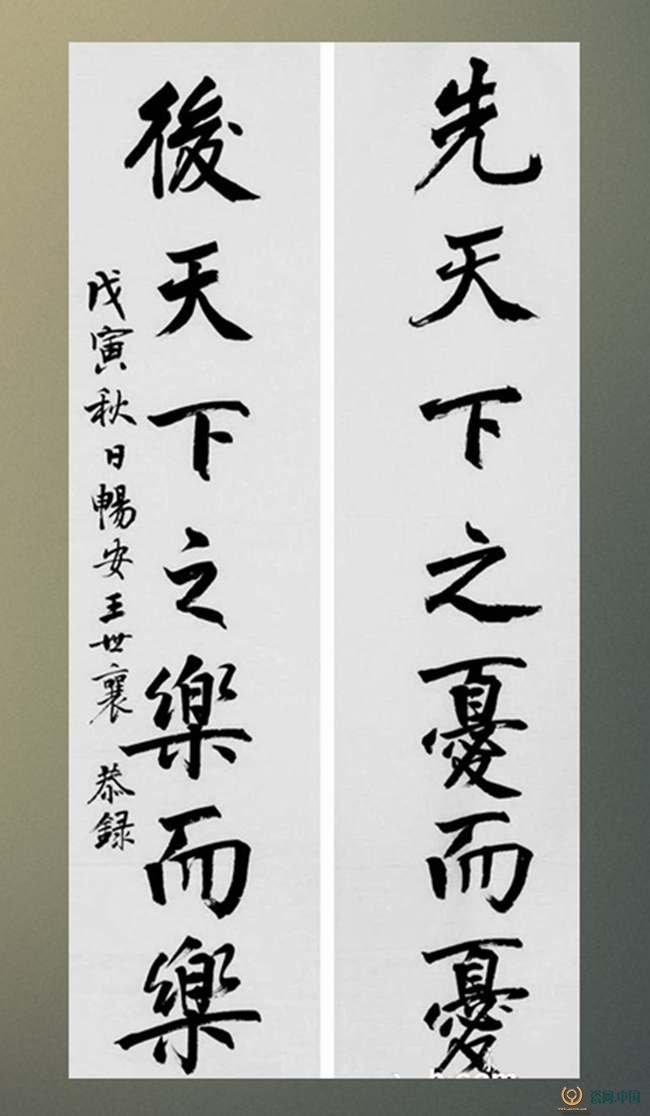 先天下之憂而憂
後天下之樂而樂
戊寅秋日暢安王世襄 恭録
咨网.中国